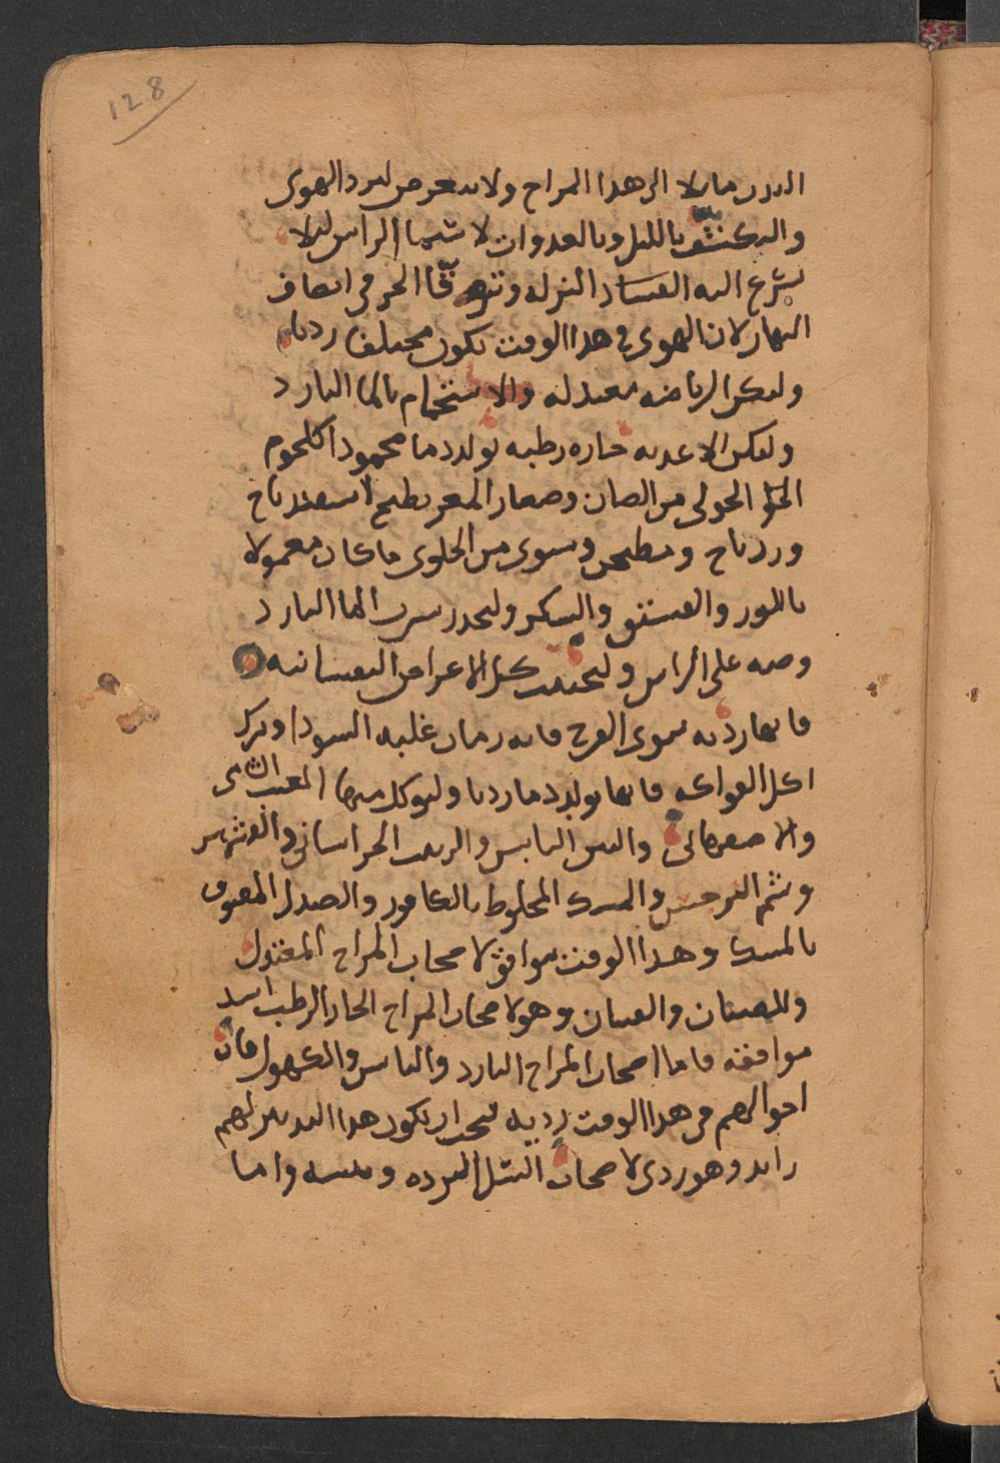 128
البدن مايلا الى هذا المزاج ولا يتعرض لبرد الهوى
والتكشف بالليل وبالغدوات لا سيما الراس ليلا
يسرع اليه الفساد النزله وتتوقا الحر في انصاف
النهار لان الهوى في هذا الوقت يكون مختلف رديا
ولتكن الرياضه معتدله والاستحمام بالما البارد
ولتكن الاغذيه حاره رطبه تولد دما محمودا كلحوم
الحولى من الضان وصغار المعز يطبخ اسفيدباج
وزرباج ومطجن وشوى من الحلوى ما كان معمولا
باللوز والفستق والسكر وليحذر شرب الما البارد
وصبه على الراس وليجتنب كل الاعراض النفسانيه
فانها رديه سوى الفرح فانه زمان غلبه السودا وترك
اكل الفواكه فانها تولد دما رديا وليوكل منها العنب
والتين اليابس والزبيب الخراساني
وشم النرجس والمسك المخلوط بالكافور والصندل
بالمسك وهذا الوقت موافق لاصحاب المزاج المعتدل
وللصبيان والفتيان وهو لاصحاب المزاج الحار الرطب اشد
موافقه فاما اصحاب المزاج البارد واليابس والكهول فان
احوالهم في هذا الوقت رديه فيجب ان يكون هذا التدبير لهم
زايد وهو ردى لاصحاب السل واما